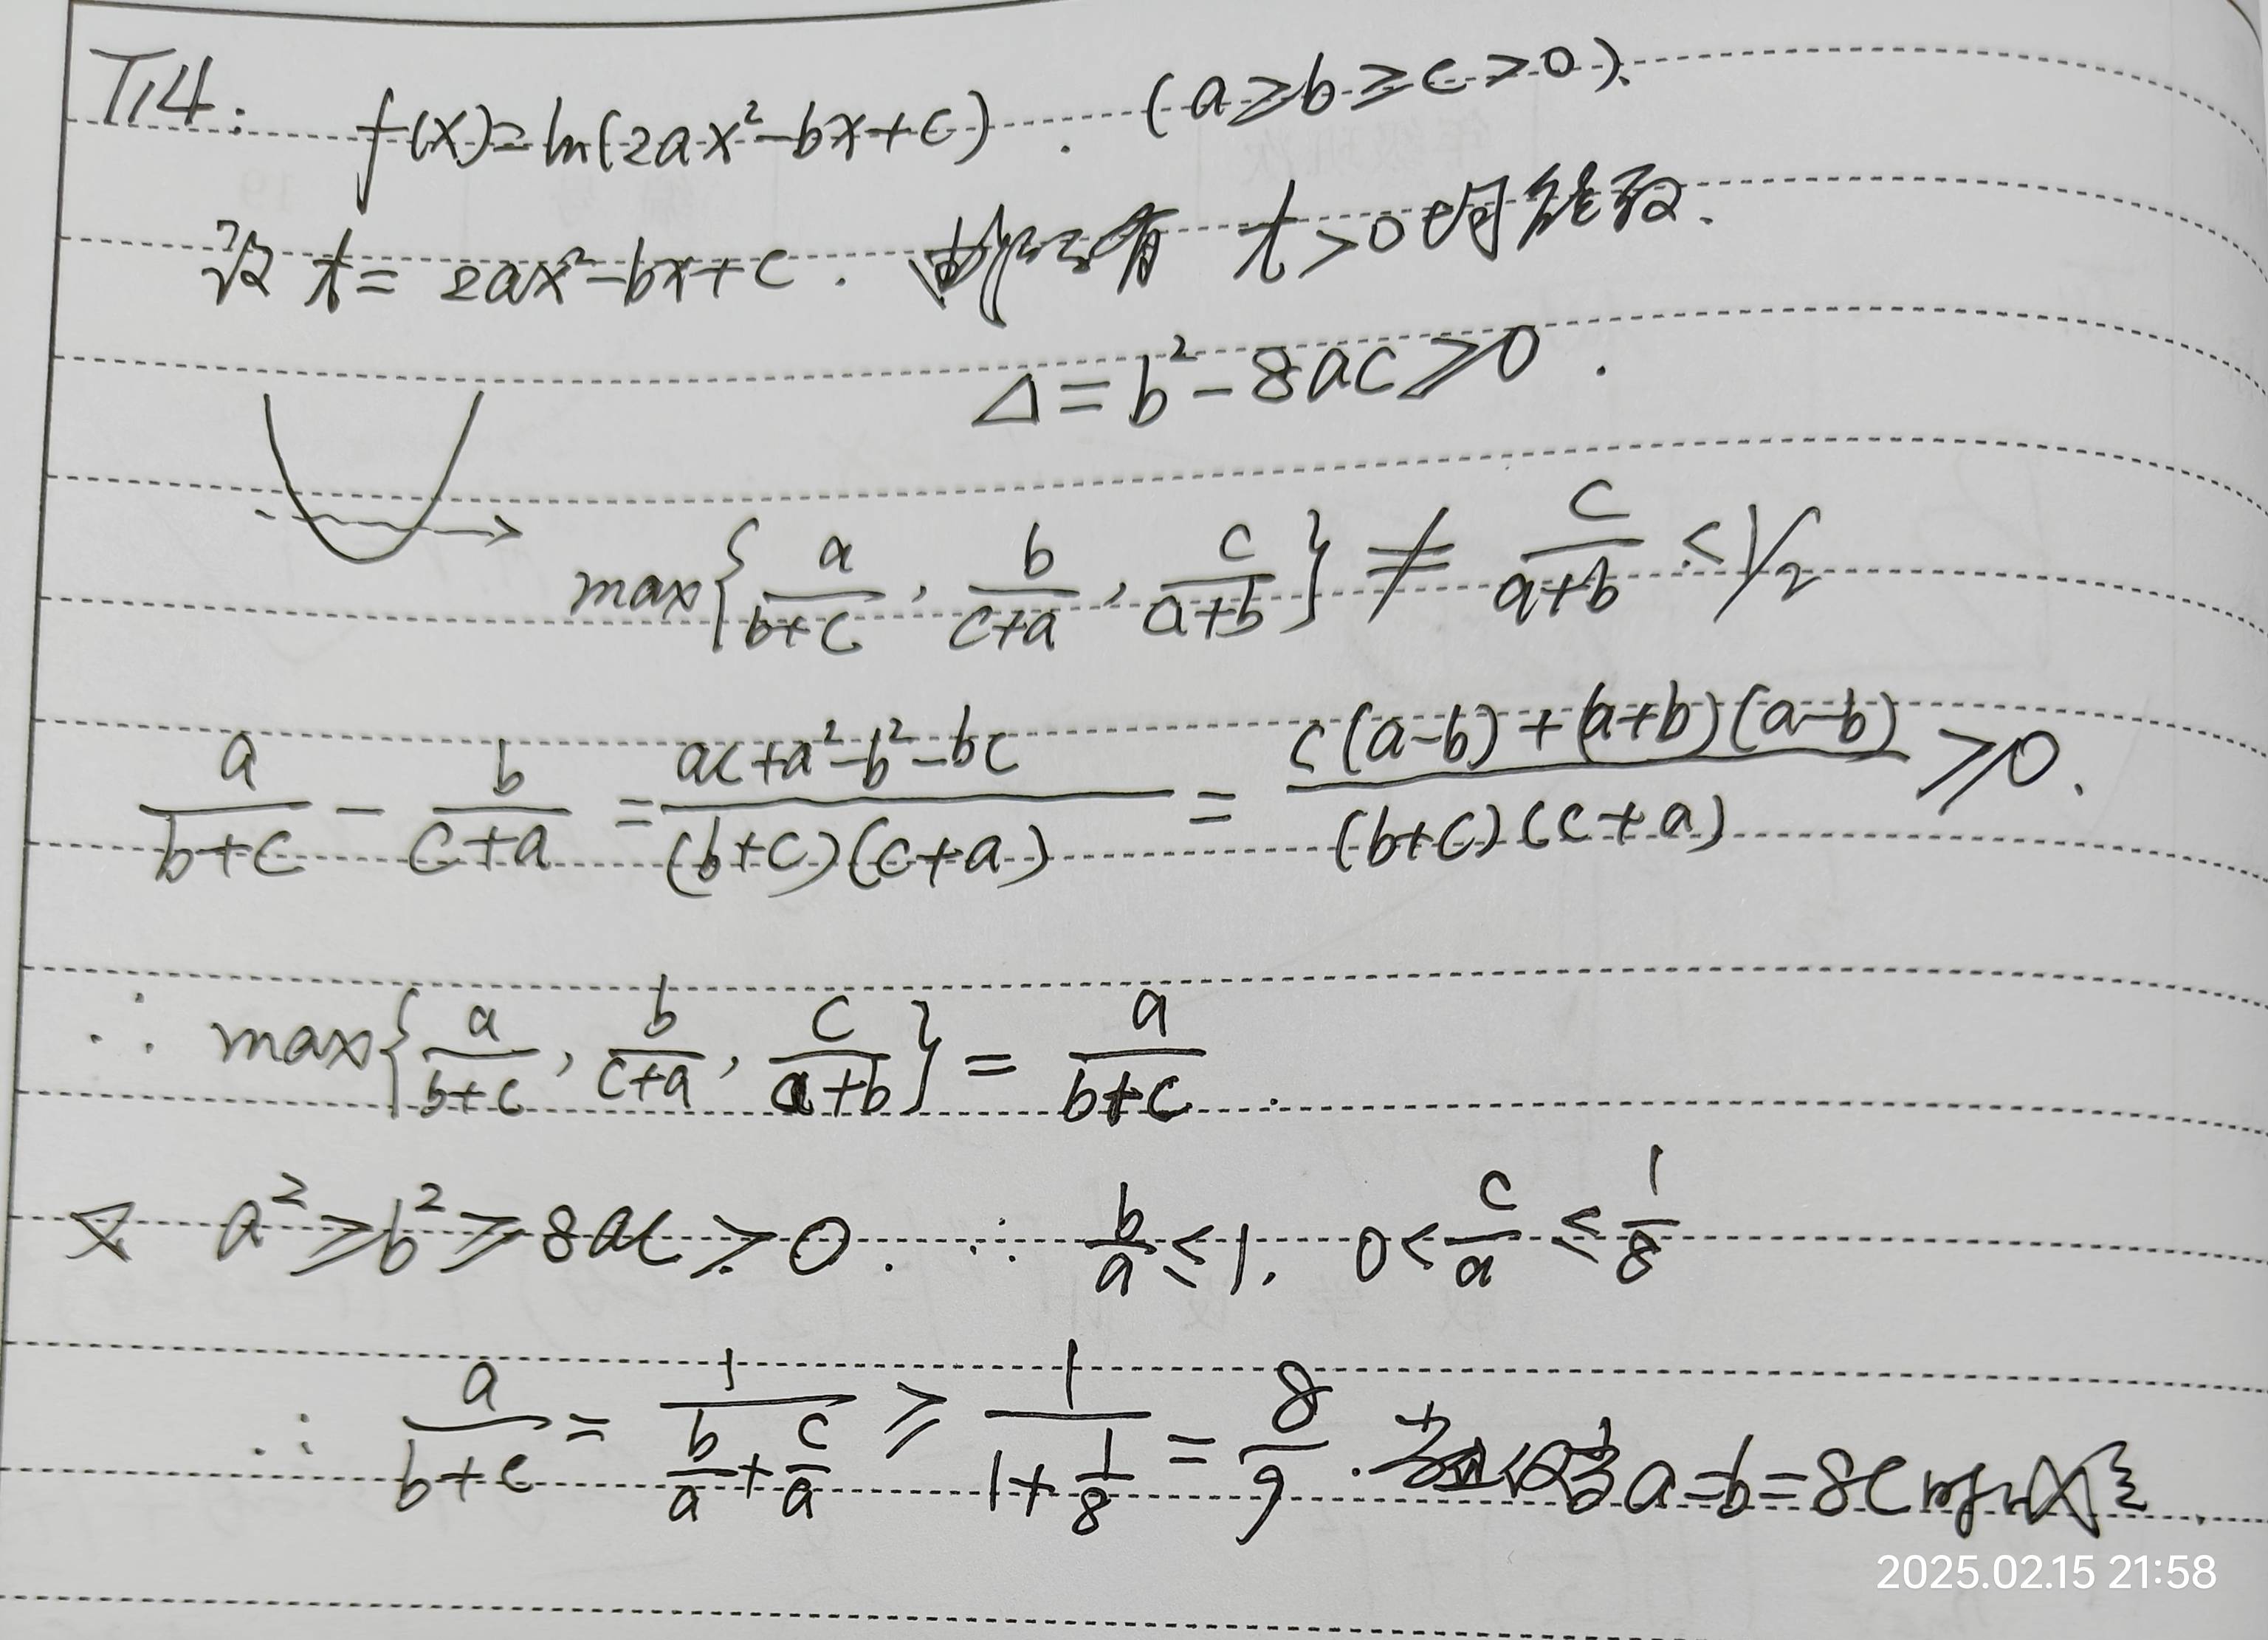 T14: f(x)=ln(2ax²-bx+c). (a≥b≥c>0).
设 t=2ax²-bx+c. 所有 t>0时能取.
Δ=b²-8ac≥0.
max{a/(b+c), b/(c+a), c/(a+b)} ≠ c/(a+b) ≤ 1/2
a/(b+c) - b/(c+a) = (ac+a²-b²-bc)/((b+c)(c+a)) = (c(a-b)+(a+b)(a-b))/((b+c)(c+a)) ≥0.
∴ max{a/(b+c), b/(c+a), c/(a+b)} = a/(b+c).
又 a²≥b²≥8ac>0. ∴ b/a≤1, 0<c/a≤1/8
∴ a/(b+c) = 1/(b/a+c/a) ≥ 1/(1+1/8) = 8/9. 当且仅当 a=b=8c时取
2025.02.15 21:58